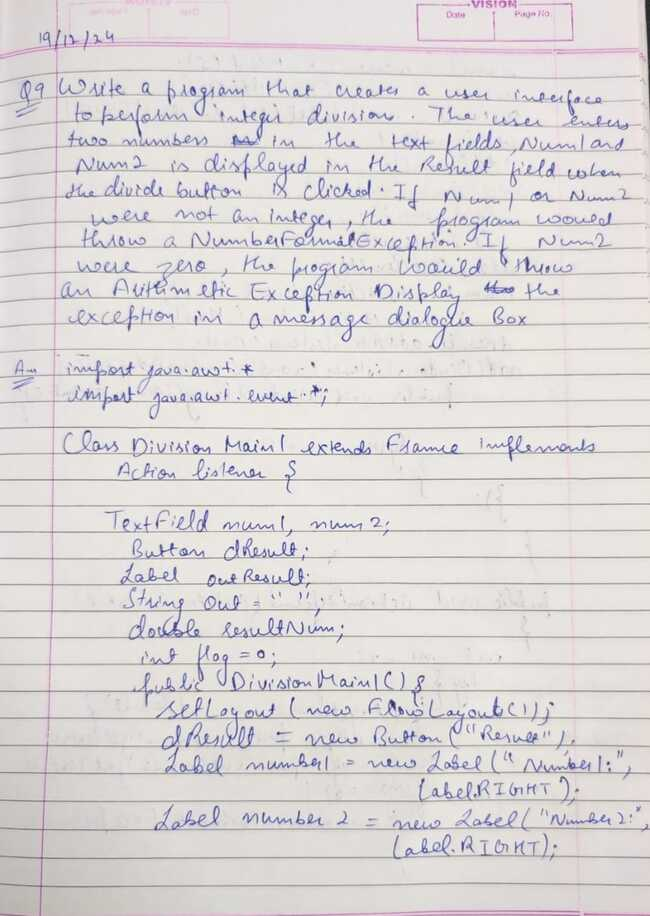 VISION
Date
Page No.
19/12/24
Q9 Write a program that creates a user interface
to perform integer division. The user enters
two numbers in the text fields, Num1 and
Num2 is displayed in the Result field when
the divide button is clicked. If Num1 or Num2
were not an integer, the program would
throw a NumberFormatException. If Num2
were zero, the program would throw
an Arithmetic Exception Display the
exception in a message dialogue Box
Ans import java.awt.*
import java.awt.event.*;
Class Division Main1 extends Frame implements
Action listener {
TextField num1, num2;
Button dResult;
Label outResult;
String Out = " ";
double resultNum;
int flag = 0;
public DivisionMain1() {
setLayout (new FlowLayout());
dResult = new Button ("Result");
Label number1 = new Label ("Number1:",
Label.RIGHT);
Label number 2 = new Label ("Number2:",
Label.RIGHT);